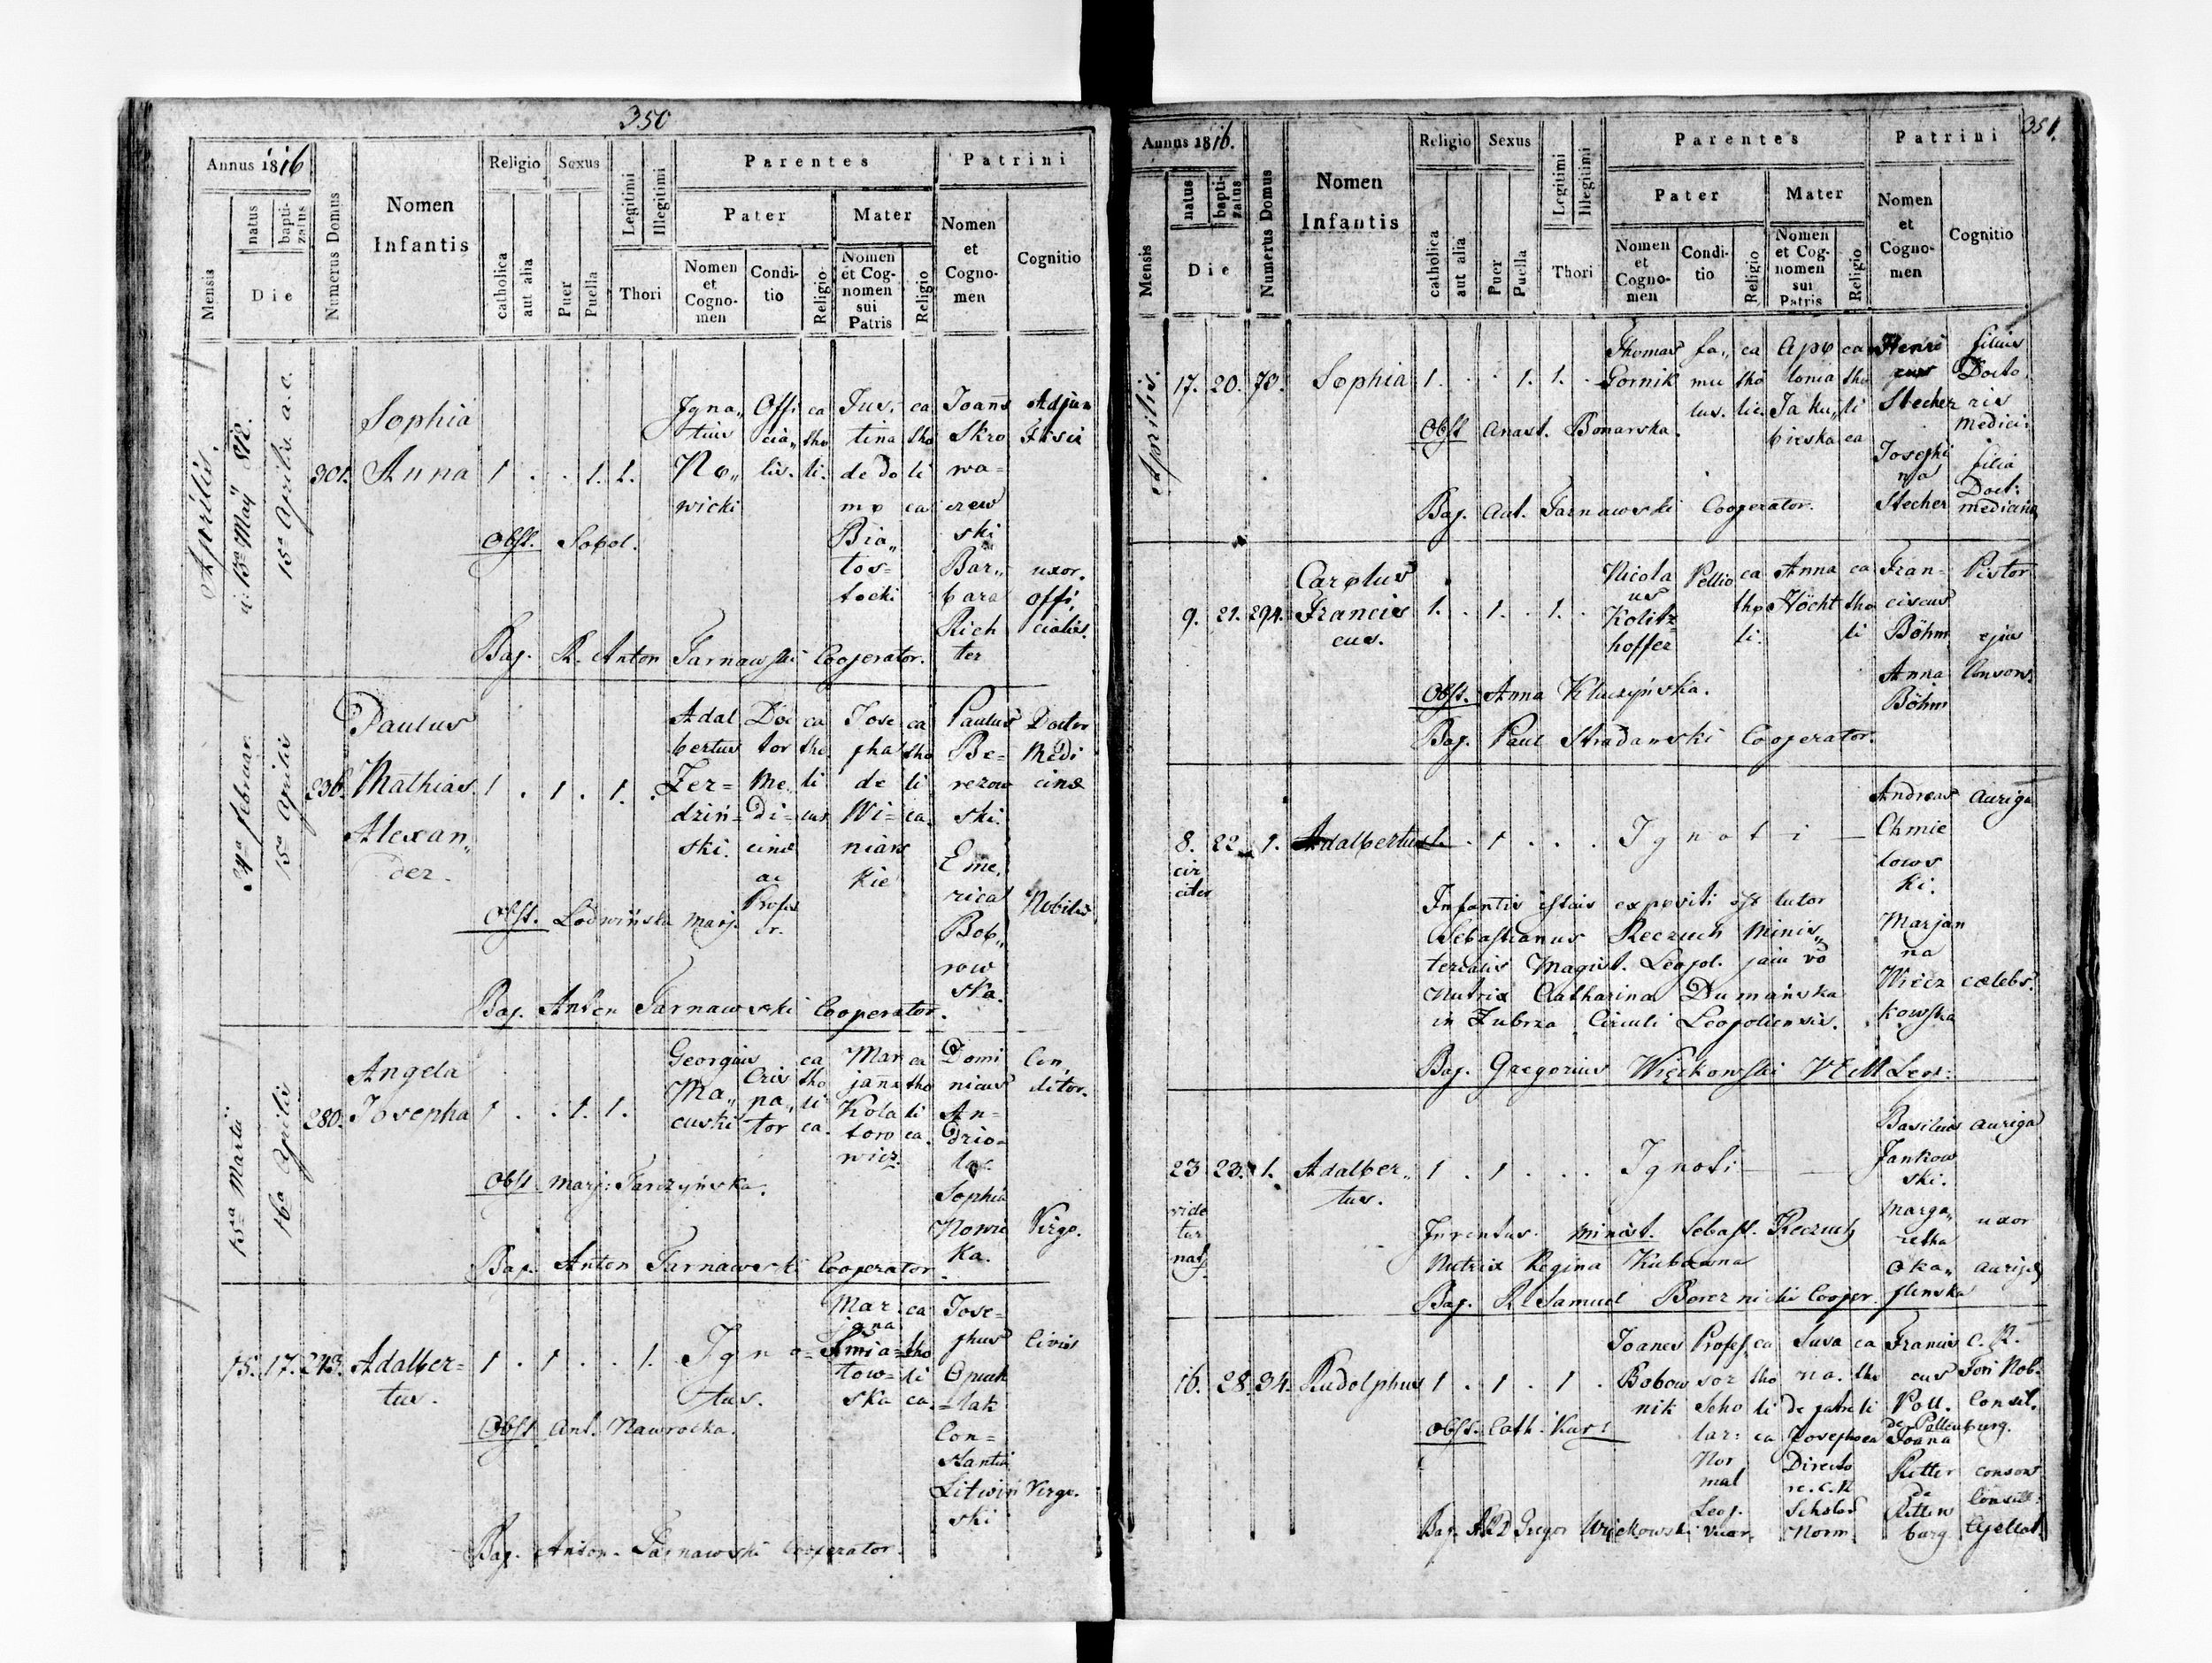 350
Annus 1816
Mensis
natus
bapti-
zatus
Die
Numerus Domus
Nomen
Infantis
Religio
catholica
aut alia
Sexus
Puer
Puella
Legitimi
Illegitimi
Thori
Parentes
Pater
Nomen
et
Cogno-
men
Condi-
tio
Religio
Mater
Nomen
et Cog-
nomen
sui
Patris
Religio
Patrini
Nomen
et
Cogno-
men
Cognitio
Aprilis.
15ª Aprilis. a. c.
301.
Sophia
Anna
1 . . 1. 1.
Igna„
tius
No„
wicki
Offi
cia„
lis.
ca
tho
li.
Jus.
tina
de do
mo
Bia„
tos=
tocki
ca
tho
li
ca
Joans
Skro
wa=
czew
ski
Bar„
bara
Rich
ter
Adjun
uxor.
offi,
cialis.
Obst. Sobol.
Bap. R. Anton Tarnawski Cooperator.
24ª Februar.
15ª Aprilis
236.
Paulus
Mathias
Alexan„
der.
1 . 1 . 1. .
Adal
bertus
Zer=
dziń=
ski.
Doc
tor
Me„
di=
cinæ
ac
Profes
or.
ca
tho
li
cus
Jose
pha
de
Wi=
niars
kie
ca
tho
li
ca.
Paulus
Be=
rezow
ski.
Eme,
rica
Bob„
row
ska.
Doctor
Medi
cinæ
Nobilis
Obst. Lodwińska Marj.
Bap. Anton Tarnawski Cooperator.
15ª Martii
16ª Aprilis
280.
Angela
Josepha
1 . . 1. 1.
Georgius
Ma„
cuski
Cris
pa„
tor
ca
tho
li
ca.
Mar
janna
Kola
tow
wicz
ca
tho
li
ca.
Domi
nicus
An=
drio=
Sophia
Nowic
ka.
Con„
ditor.
Virgo.
Obst Marj: Tarczyńska.
Bap. Anton Tarnawski Cooperator.
15. 17. 243.
Adalber=
tus.
1 . 1 . . 1.
Igno=
tus.
Mar
janna
Smia=
tow=
ska
ca
tho
li
ca.
Jose=
phus
Opuch
=lak
Con=
stantia
Litwiń
ski
Civis
Virgo.
Obst Ant. Nawrocka.
Bap. Anton. Tarnawski Cooperator.
351.
Annus 1816.
Mensis
natus
bapti-
zatus
Die
Numerus Domus
Nomen
Infantis
Religio
catholica
aut alia
Sexus
Puer
Puella
Legitimi
Illegitimi
Thori
Parentes
Pater
Nomen
et
Cogno-
men
Condi-
tio
Religio
Mater
Nomen
et Cog-
nomen
sui
Patris
Religio
Patrini
Nomen
et
Cogno-
men
Cognitio
Aprilis.
17. 20. 78.
Sophia
1. . . 1. 1. .
Thomas
Gornik
fa„
mu
lus.
ca
tho
lic.
Apo
lonia
Jaku„
bieska
ca
tho
li
ca
Henri
cus
Stecher
Josephi
na
Stecher
filius
Docto„
ris
Medici:
filia
Doct:
medicina
Obst Anast. Bonarska.
Bap. Ant. Tarnawski Cooperator.
9. 21. 294.
Carolus
Francis
cus.
1. . 1. . 1. .
Nicola
us
Kolitz=
hoffer
Pellio
ca
tho
li:
Anna
Höcht
ca
tho
li
Fran=
ciscus
Böhm
Anna
Böhm
Pistor
ejus
Consors.
Obst. Anna Kłuczyńska.
Bap. Paul Stradawski Cooperator.
8. 22. 1.
cir
citer
Adalbertus
1. . 1 . . .
Ignoti
Andreas
Chmie
lows
ki.
Marjan
na
Wiecz
kowska
Auriga
cœlebs.
Infantis istius expositi est tutor
Sebastianus Reczuch Minis„
terialis Magist. Leopol.
Nutrix Catharina Dumańska
in Zubrza Circuli Leopoliensis.
Bap. Gregorius Więckowski Leop:
23 23. 1.
vide
tur
nat.
Adalber„
tus.
1 . 1 . . .
Ignoti
Basilius
Jankow
ski.
Marga„
retha
Oka„
flenska
Auriga
uxor
Aurigæ
Inventus. Minist. Sebast. Reczuch
Nutrix Regina Kubowna
Bap. Samuel Borcznicki Cooper.
16. 28. 34.
Rudolphus
1 . 1 . 1 .
Joanes
Bobow
nik
Profes
sor
Scho
lar:
Nor
mal
Leop.
ca
tho
li
ca
Susa
na.
de patre
Josepho
Directo
re. C. R.
Scholar
Norm.
ca
tho
li
ca
Francis
cus
Poll.
de Pollenburg.
Joana
Ritter
de
Ritters
burg
C. R.
Fori Nob.
Consil.
consors
Consil:
Appellat.
Obst. Cath. Kurz
Bap. Gregor Więckowski Vicar.